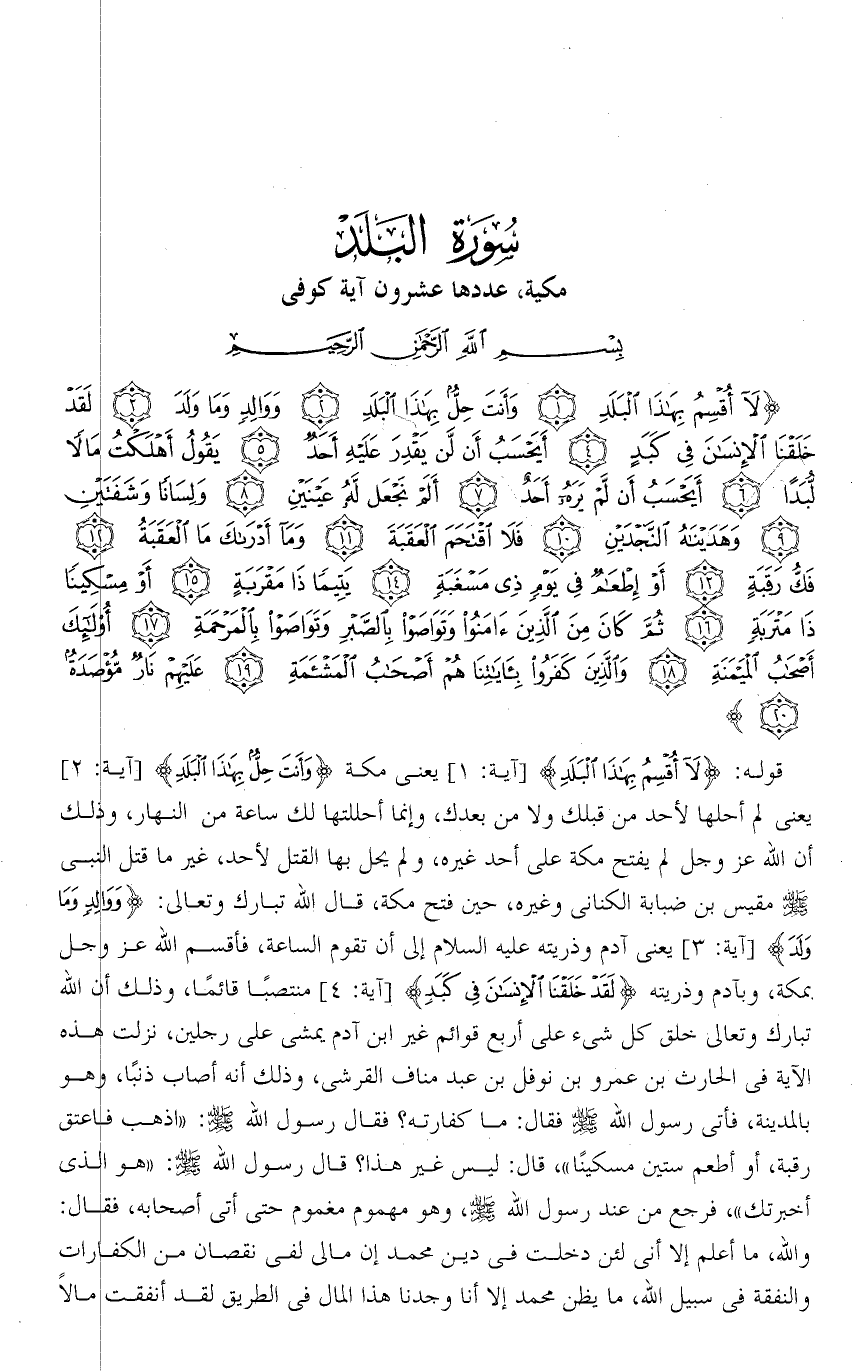 سُورَةُ البَلَدِ
مكية، عددها عشرون آية كوفى
بِسْمِ اللَّهِ الرَّحْمَٰنِ الرَّحِيمِ
﴿لَآ أُقْسِمُ بِهَٰذَا ٱلْبَلَدِ ١ وَأَنتَ حِلٌّۢ بِهَٰذَا ٱلْبَلَدِ ٢ وَوَالِدٍ وَمَا وَلَدَ ٣ لَقَدْ
خَلَقْنَا ٱلْإِنسَٰنَ فِى كَبَدٍ ٤ أَيَحْسَبُ أَن لَّن يَقْدِرَ عَلَيْهِ أَحَدٌ ٥ يَقُولُ أَهْلَكْتُ مَالًا
لُّبَدًا ٦ أَيَحْسَبُ أَن لَّمْ يَرَهُۥٓ أَحَدٌ ٧ أَلَمْ نَجْعَل لَّهُۥ عَيْنَيْنِ ٨ وَلِسَانًا وَشَفَتَيْنِ
٩ وَهَدَيْنَٰهُ ٱلنَّجْدَيْنِ ١٠ فَلَا ٱقْتَحَمَ ٱلْعَقَبَةَ ١١ وَمَآ أَدْرَىٰكَ مَا ٱلْعَقَبَةُ ١٢
فَكُّ رَقَبَةٍ ١٣ أَوْ إِطْعَٰمٌ فِى يَوْمٍ ذِى مَسْغَبَةٍ ١٤ يَتِيمًا ذَا مَقْرَبَةٍ ١٥ أَوْ مِسْكِينًا
ذَا مَتْرَبَةٍ ١٦ ثُمَّ كَانَ مِنَ ٱلَّذِينَ ءَامَنُوا۟ وَتَوَاصَوْا۟ بِٱلصَّبْرِ وَتَوَاصَوْا۟ بِٱلْمَرْحَمَةِ ١٧ أُو۟لَٰٓئِكَ
أَصْحَٰبُ ٱلْمَيْمَنَةِ ١٨ وَٱلَّذِينَ كَفَرُوا۟ بِـَٔايَٰتِنَا هُمْ أَصْحَٰبُ ٱلْمَشْـَٔمَةِ ١٩ عَلَيْهِمْ نَارٌ مُّؤْصَدَةٌۢ
٢٠ ﴾
قوله: ﴿لَآ أُقْسِمُ بِهَٰذَا ٱلْبَلَدِ﴾ [آية: ١] يعنى مكة ﴿وَأَنتَ حِلٌّۢ بِهَٰذَا ٱلْبَلَدِ﴾ [آية: ٢]
يعنى لم أحلها لأحد من قبلك ولا من بعدك، وإنما أحللتها لك ساعة من النهار، وذلك
أن الله عز وجل لم يفتح مكة على أحد غيره، ولم يحل بها القتل لأحد، غير ما قتل النبى
ﷺ مقيس بن ضبابة الكنانى وغيره، حين فتح مكة، قال الله تبارك وتعالى: ﴿وَوَالِدٍ وَمَا
وَلَدَ﴾ [آية: ٣] يعنى آدم وذريته عليه السلام إلى أن تقوم الساعة، فأقسم الله عز وجل
بمكة، وبآدم وذريته ﴿لَقَدْ خَلَقْنَا ٱلْإِنسَٰنَ فِى كَبَدٍ﴾ [آية: ٤] منتصبًا قائمًا، وذلك أن الله
تبارك وتعالى خلق كل شىء على أربع قوائم غير ابن آدم يمشى على رجلين، نزلت هذه
الآية فى الحارث بن عمرو بن نوفل بن عبد مناف القرشى، وذلك أنه أصاب ذنبًا، وهو
بالمدينة، فأتى رسول الله ﷺ فقال: ما كفارته؟ فقال رسول الله ﷺ: «اذهب فاعتق
رقبة، أو أطعم ستين مسكينًا»، قال: ليس غير هذا؟ قال رسول الله ﷺ: «هو الذى
أخبرتك»، فرجع من عند رسول الله ﷺ، وهو مهموم مغموم حتى أتى أصحابه، فقال:
والله، ما أعلم إلا أنى لئن دخلت فى دين محمد إن مالى لفى نقصان من الكفارات
والنفقة فى سبيل الله، ما يظن محمد إلا أنا وجدنا هذا المال فى الطريق لقد أنفقت مالاً